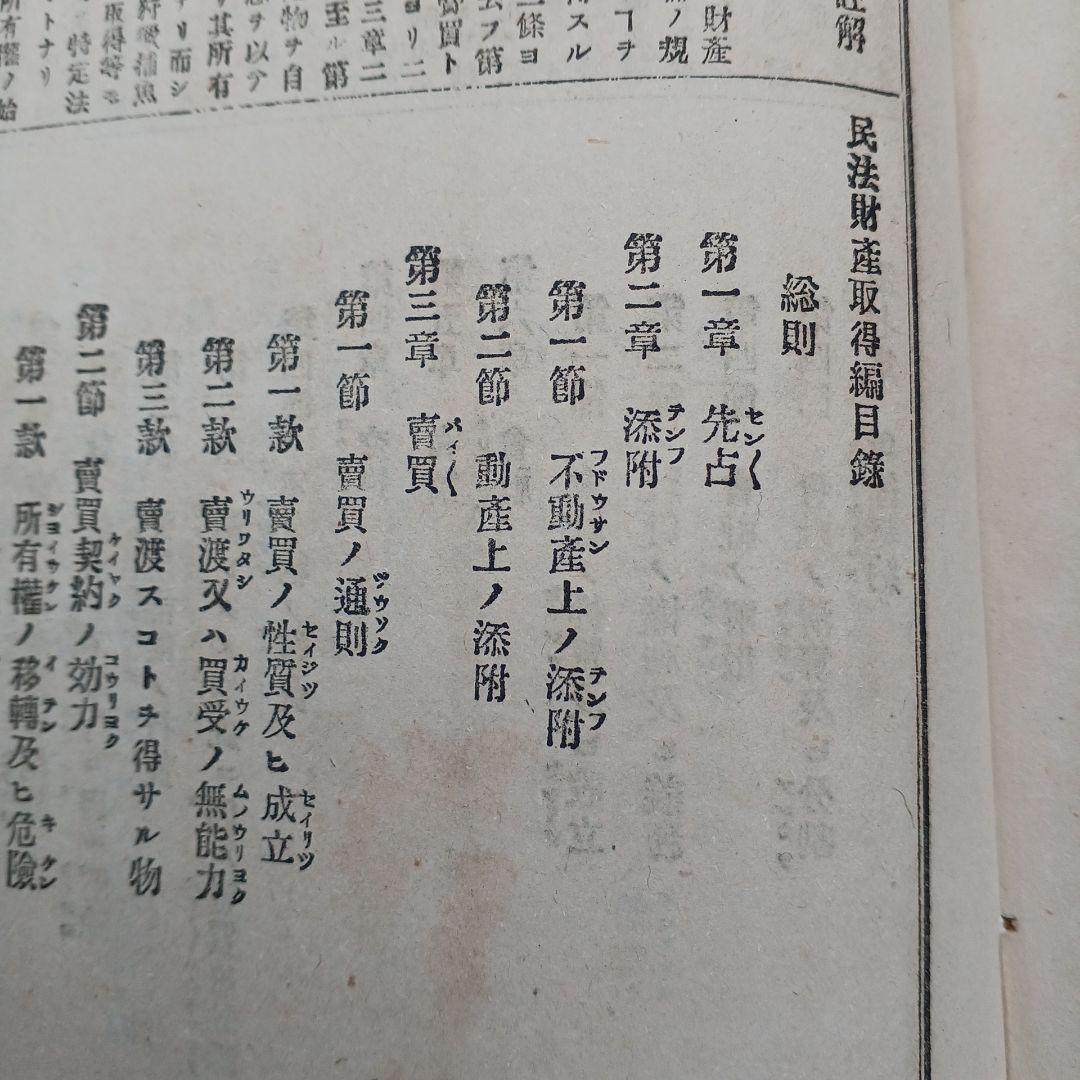 註解
財産
ノ規
ヿヲ
スル
二條ヨ
ムフ第
賣買ト
ヨリ二
至ル第
三章二
物ヲ自
ヲ以テ
其所有
リ而シ
取得等モ
狩獵浦魚
特定法
トナリ
所有權ノ始
民法財產取得編目錄
総則
第一章 先占
セン〱
第二章 添附
テンフ
第一節 不動產上ノ添附
フドウサン テンフ
第二節 動產上ノ添附
第三章 賣買
バイ〱
第一節 賣買ノ通則
ツウソク
第一款 賣買ノ性質及ヒ成立
セイジツ セイリツ
第二款 賣渡又ハ買受ノ無能力
ウリワタシ カイウケ ムノウリヨク
第三款 賣渡スコトヲ得サル物
第二節 賣買契約ノ効力
ケイヤク コウリヨク
第一款 所有權ノ移轉及ヒ危險
シヨイウケン イテン キケン